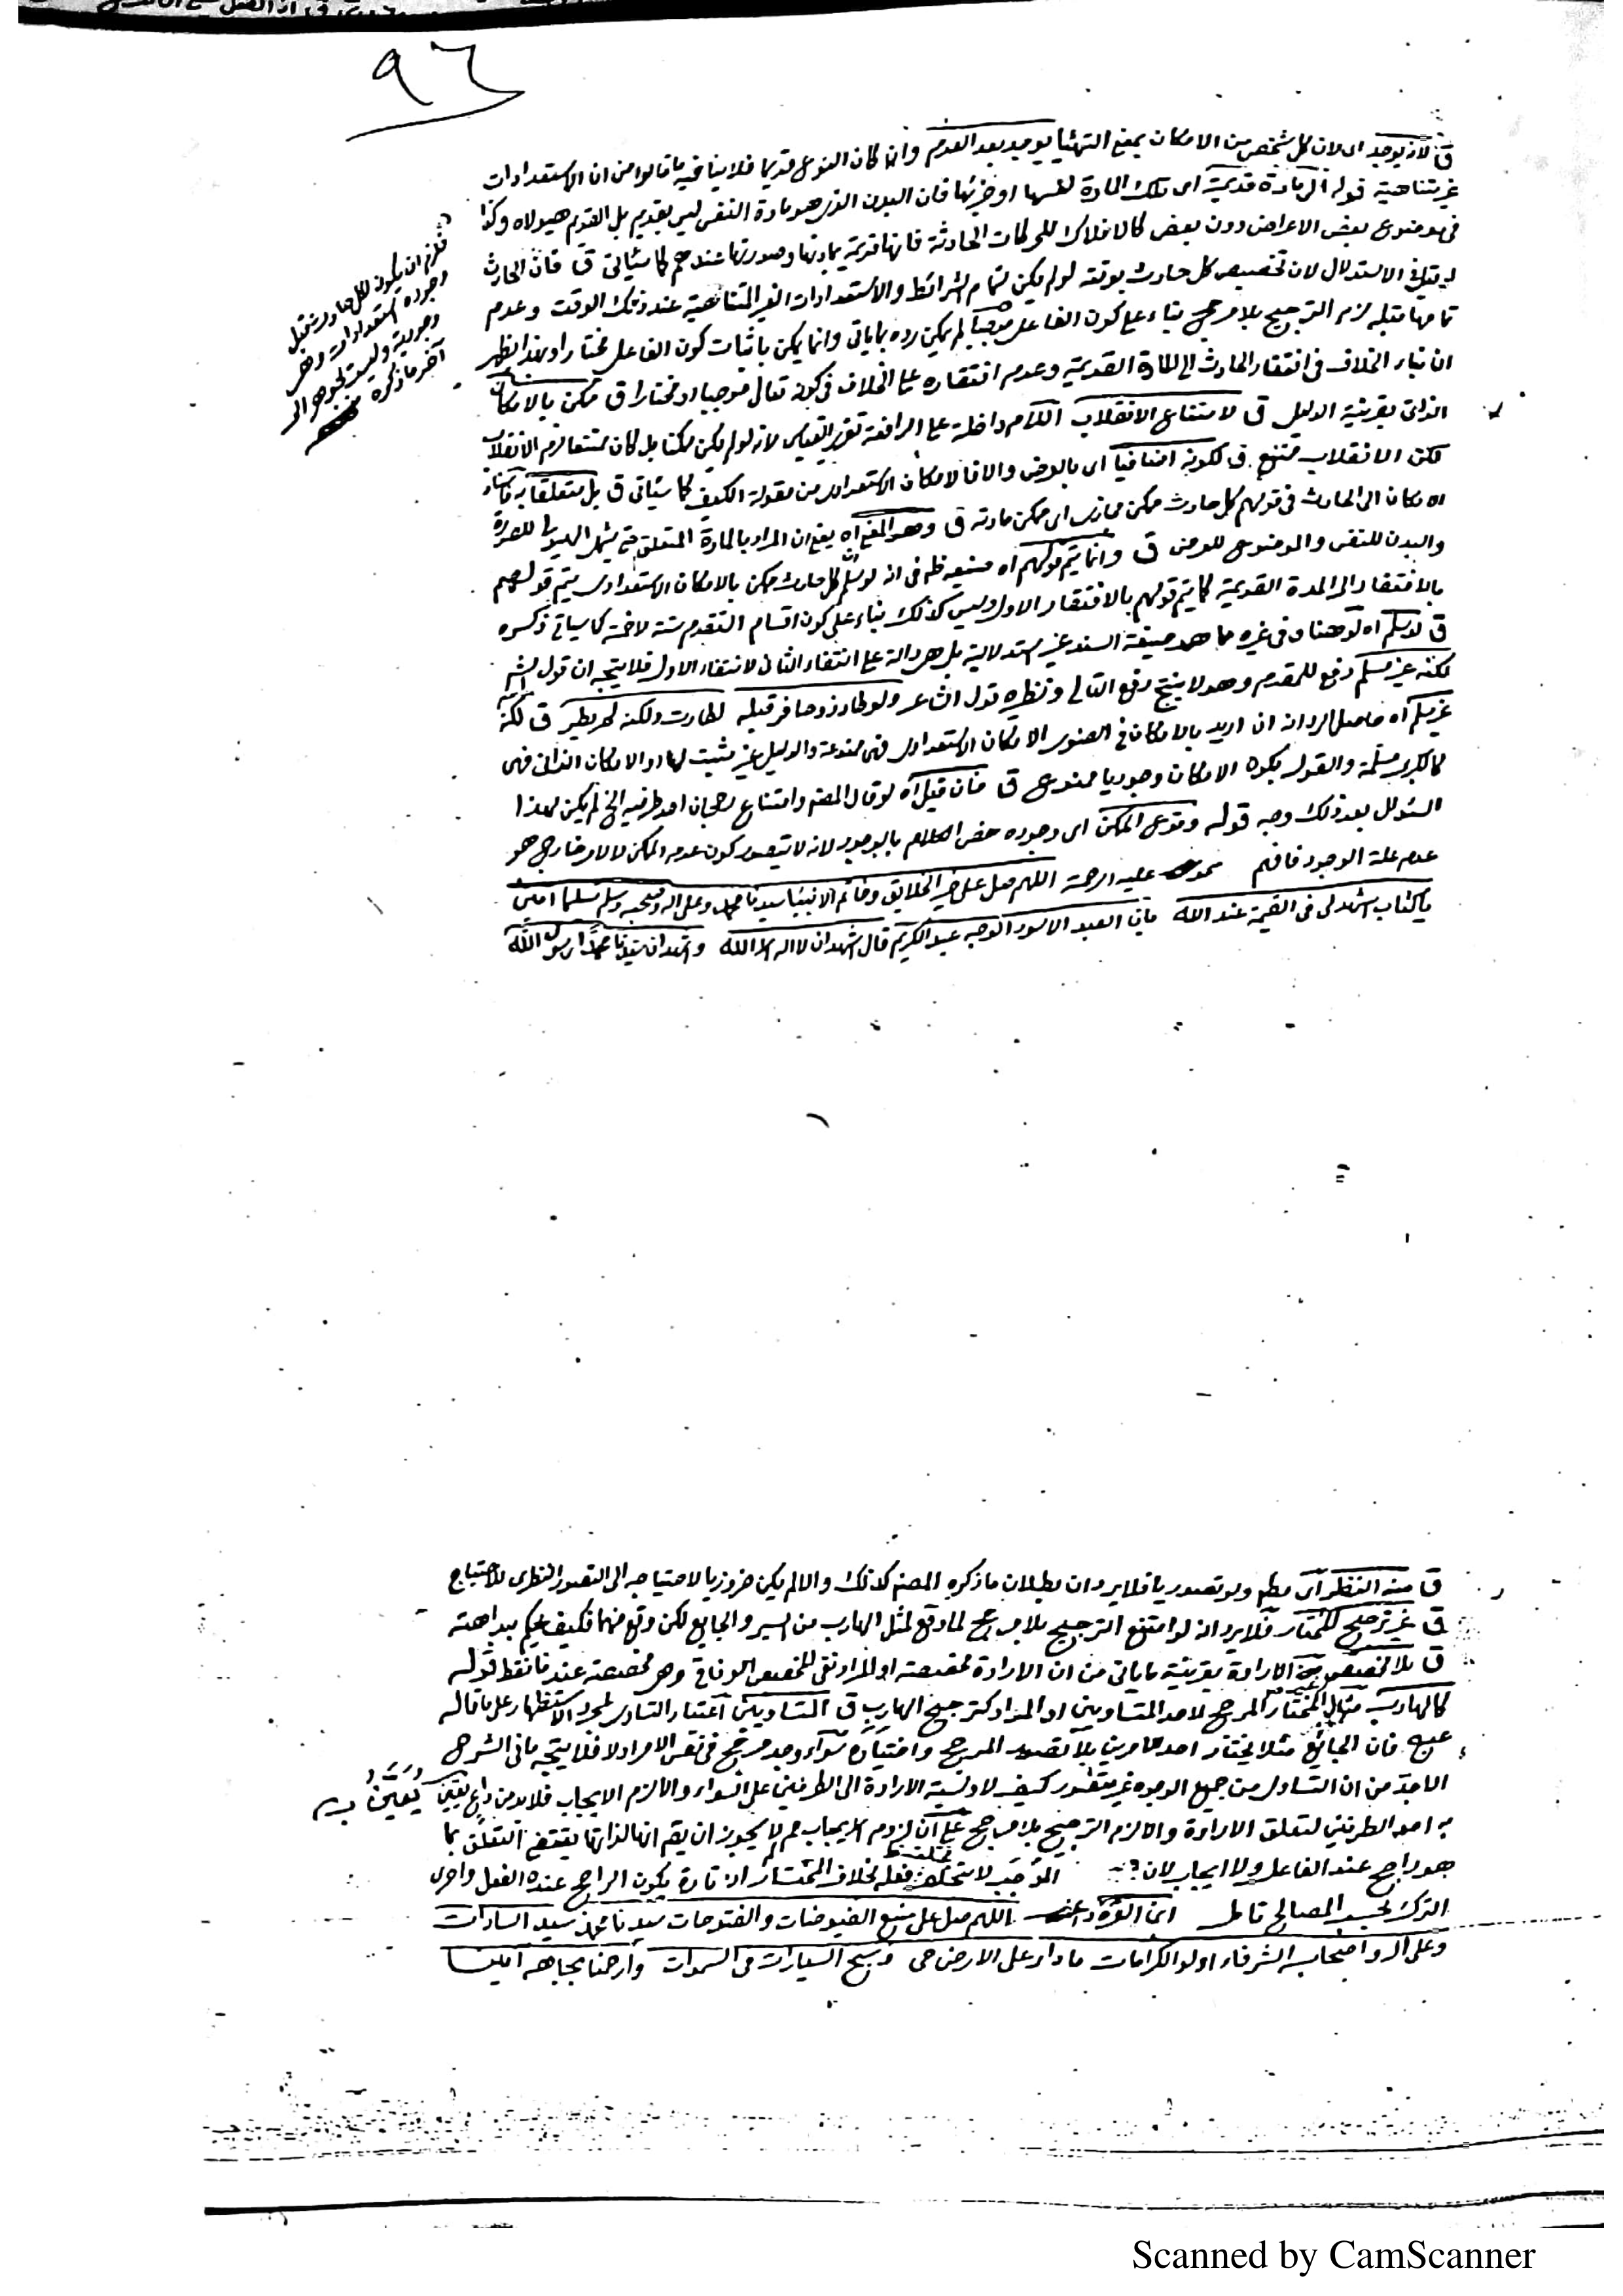 ٩٦
ق لانه يوجد اى لان كل شخص من الامكان بمعنى التهيئا يوجد بعد العدم وان كان النوع قديما فلا ينافيه ما قالوا من ان الاستعدادات
غير متناهية قوله مادة قديمة اى تلك المادة نفسها او جزئها فان البدن الذى هو مادة النفس ليس بقديم بل القديم هيولاه وكذا
فى موضوع بعض الاعراض دون بعض كالافلاك للحركات الحادثة فانها قديمة بمادتها وصورتها عندهم كما سيأتى ق فان الحادث
الاستدلال لان تخصيص كل حادث بوقته لو لم يكن لتمام الشرائط والاستعدادات الغير المتناهية عند ذلك الوقت وعدم
تمامها قبله لزم الترجيح بلا مرجح بناء على كون الفاعل موجبا لم يمكن رده بما يأتى وانما يمكن باثبات كون الفاعل مختارا وبهذا يظهر
ان بناء الخلاف فى افتقار الحادث الى المادة القديمة وعدم افتقاره على الخلاف فى كونه تعالى موجبا او مختارا ق ممكن بالامكان
الذاتى بقرينة الدليل ق لامتناع الانقلاب اللام داخلة على الرافعة تقرير القياس لانه لو لم يكن ممكنا بل كان ممتنعا لزم الانقلاب
لكن الانقلاب ممتنع ق لكونه اضافيا اى بالعرض والا فالامكان الاستعدادى من مقولة الكيف كما سيأتى ق بل متعلقا به
الامكان الى الحادث فى قولهم كل حادث ممكن مجازى اى ممكن مادته ق وهو المعنى اه يعنى ان المراد بالمادة المتعلق حتى يشمل الهيولى للصورة
والبدن للنفس والموضوع للعرض ق وانما يتم قولهم اه فى انه لو سلم ان كل حادث ممكن بالامكان الاستعدادى يتم قولهم
بالافتقار الى المدة القديمة كما يتم قولهم بالافتقار الاول وليس كذلك بناء على كون اقسام التقدم ستة لا خمسة كما سيأتى ذكره
ق لو سلم اه لو هنا وفى غيره مما هو صيغة السند غير استدلالية بل هى دالة على انتفاء الثانى لانتفاء الاول فلا يتجه ان قول الشم
لكنه غير مسلم رفع للمقدم وهو لا ينتج رفع التالى ونظيره قول الشاعر ولو طار ذو حافر قبله لطارت ولكنه لم يطير ق لكنه
غير مسلم اه حاصل الرد انه ان اريد بالامكان فى الصغرى الامكان الاستعدادى فهى ممنوعة والدليل غير مثبت لها او الامكان الذاتى فهى
كالكبرى مسلمة والقول بكون الامكان وجوديا ممنوع ق فان قيل اه لو قال المصم وامتناع رجحان احد طرفيه الخ لم يكن لهذا
السئوال بعد ذلك وجه قوله وقوع الممكن اى وجوده خص الكلام بالوجود لانه لا يتصور كون عدم الممكن لا لامر خارج هو
عدم علة الوجود فافهم عليه الرحمة اللهم صل على خير الخلايق وخاتم الانبياء سيدنا محمد وعلى اله وصحبه وسلم تسليما امين
يا كتاب اشهد لى فى القيمة عند الله بان العبد الاسود الوجه عبد الكريم قال اشهد ان لا اله الا الله واشهد ان سيدنا محمدا رسول الله
فلزم ان يكون لكل حادث قبل
وجوده استعدادات وهى
وجودية وليست بجوهر الى
آخر ما ذكره
ق منه النظر اى ولو تصوريا فلا يرد ان بطلان ما ذكره المصم كذلك والا لم يكن ضروريا لاحتياجه الى التصور النظرى للاحتياج
ق غير ترجيح للمختار فلا يرد انه لو امتنع الترجيح بلا مرجح لما وقع لمثل الهارب من السبع والجايع لكن وقع منهما فكيف يحكم ببداهته
ق بلا مخصص غير الارادة بقرينة ما يأتى من ان الارادة مخصصة او المراد نفى المخصص الوفاقى وهى مخصصة عندنا فقط قوله
كالهارب مثال للمختار المرجح لاحد المتساويين او المراد كترجيح الهارب ق المتساويين اعتبار التساوى لمجرد الاستظهار على ما قاله
فان الجايع مثلا يختار احدهما من بلا تصور المرجح واختياره سواء وجد مرجح فى نفس الامر او لا فلا يتجه ما فى الشرح
من ان التساوى من جميع الوجوه غير متصور كيف لا ونسبة الارادة الى الطرفين على السواء والا لزم الايجاب فلا بد من داع يعين
احد الطرفين لتعلق الارادة والا لزم الترجيح بلا مرجح على ان لزوم الايجاب لم لا يجوز ان يقم انها لذاتها يقتضى التعلق بما
هو راجح عند الفاعل ولا ايجاب لان الموجب لا يتخلف فعله بخلاف المختار اذ تارة يكون الراجح عنده الفعل واخرى
الترك بحسب المصالح تامل ابن القره داغى اللهم صل على منبع الفيوضات والفتوحات سيدنا محمد سيد السادات
وعلى اله واصحابه الشرفاء اولو الكرامات ما دار على الارض حى وسبح السيارات فى السموات وارحمنا بجاهه امين
Scanned by CamScanner